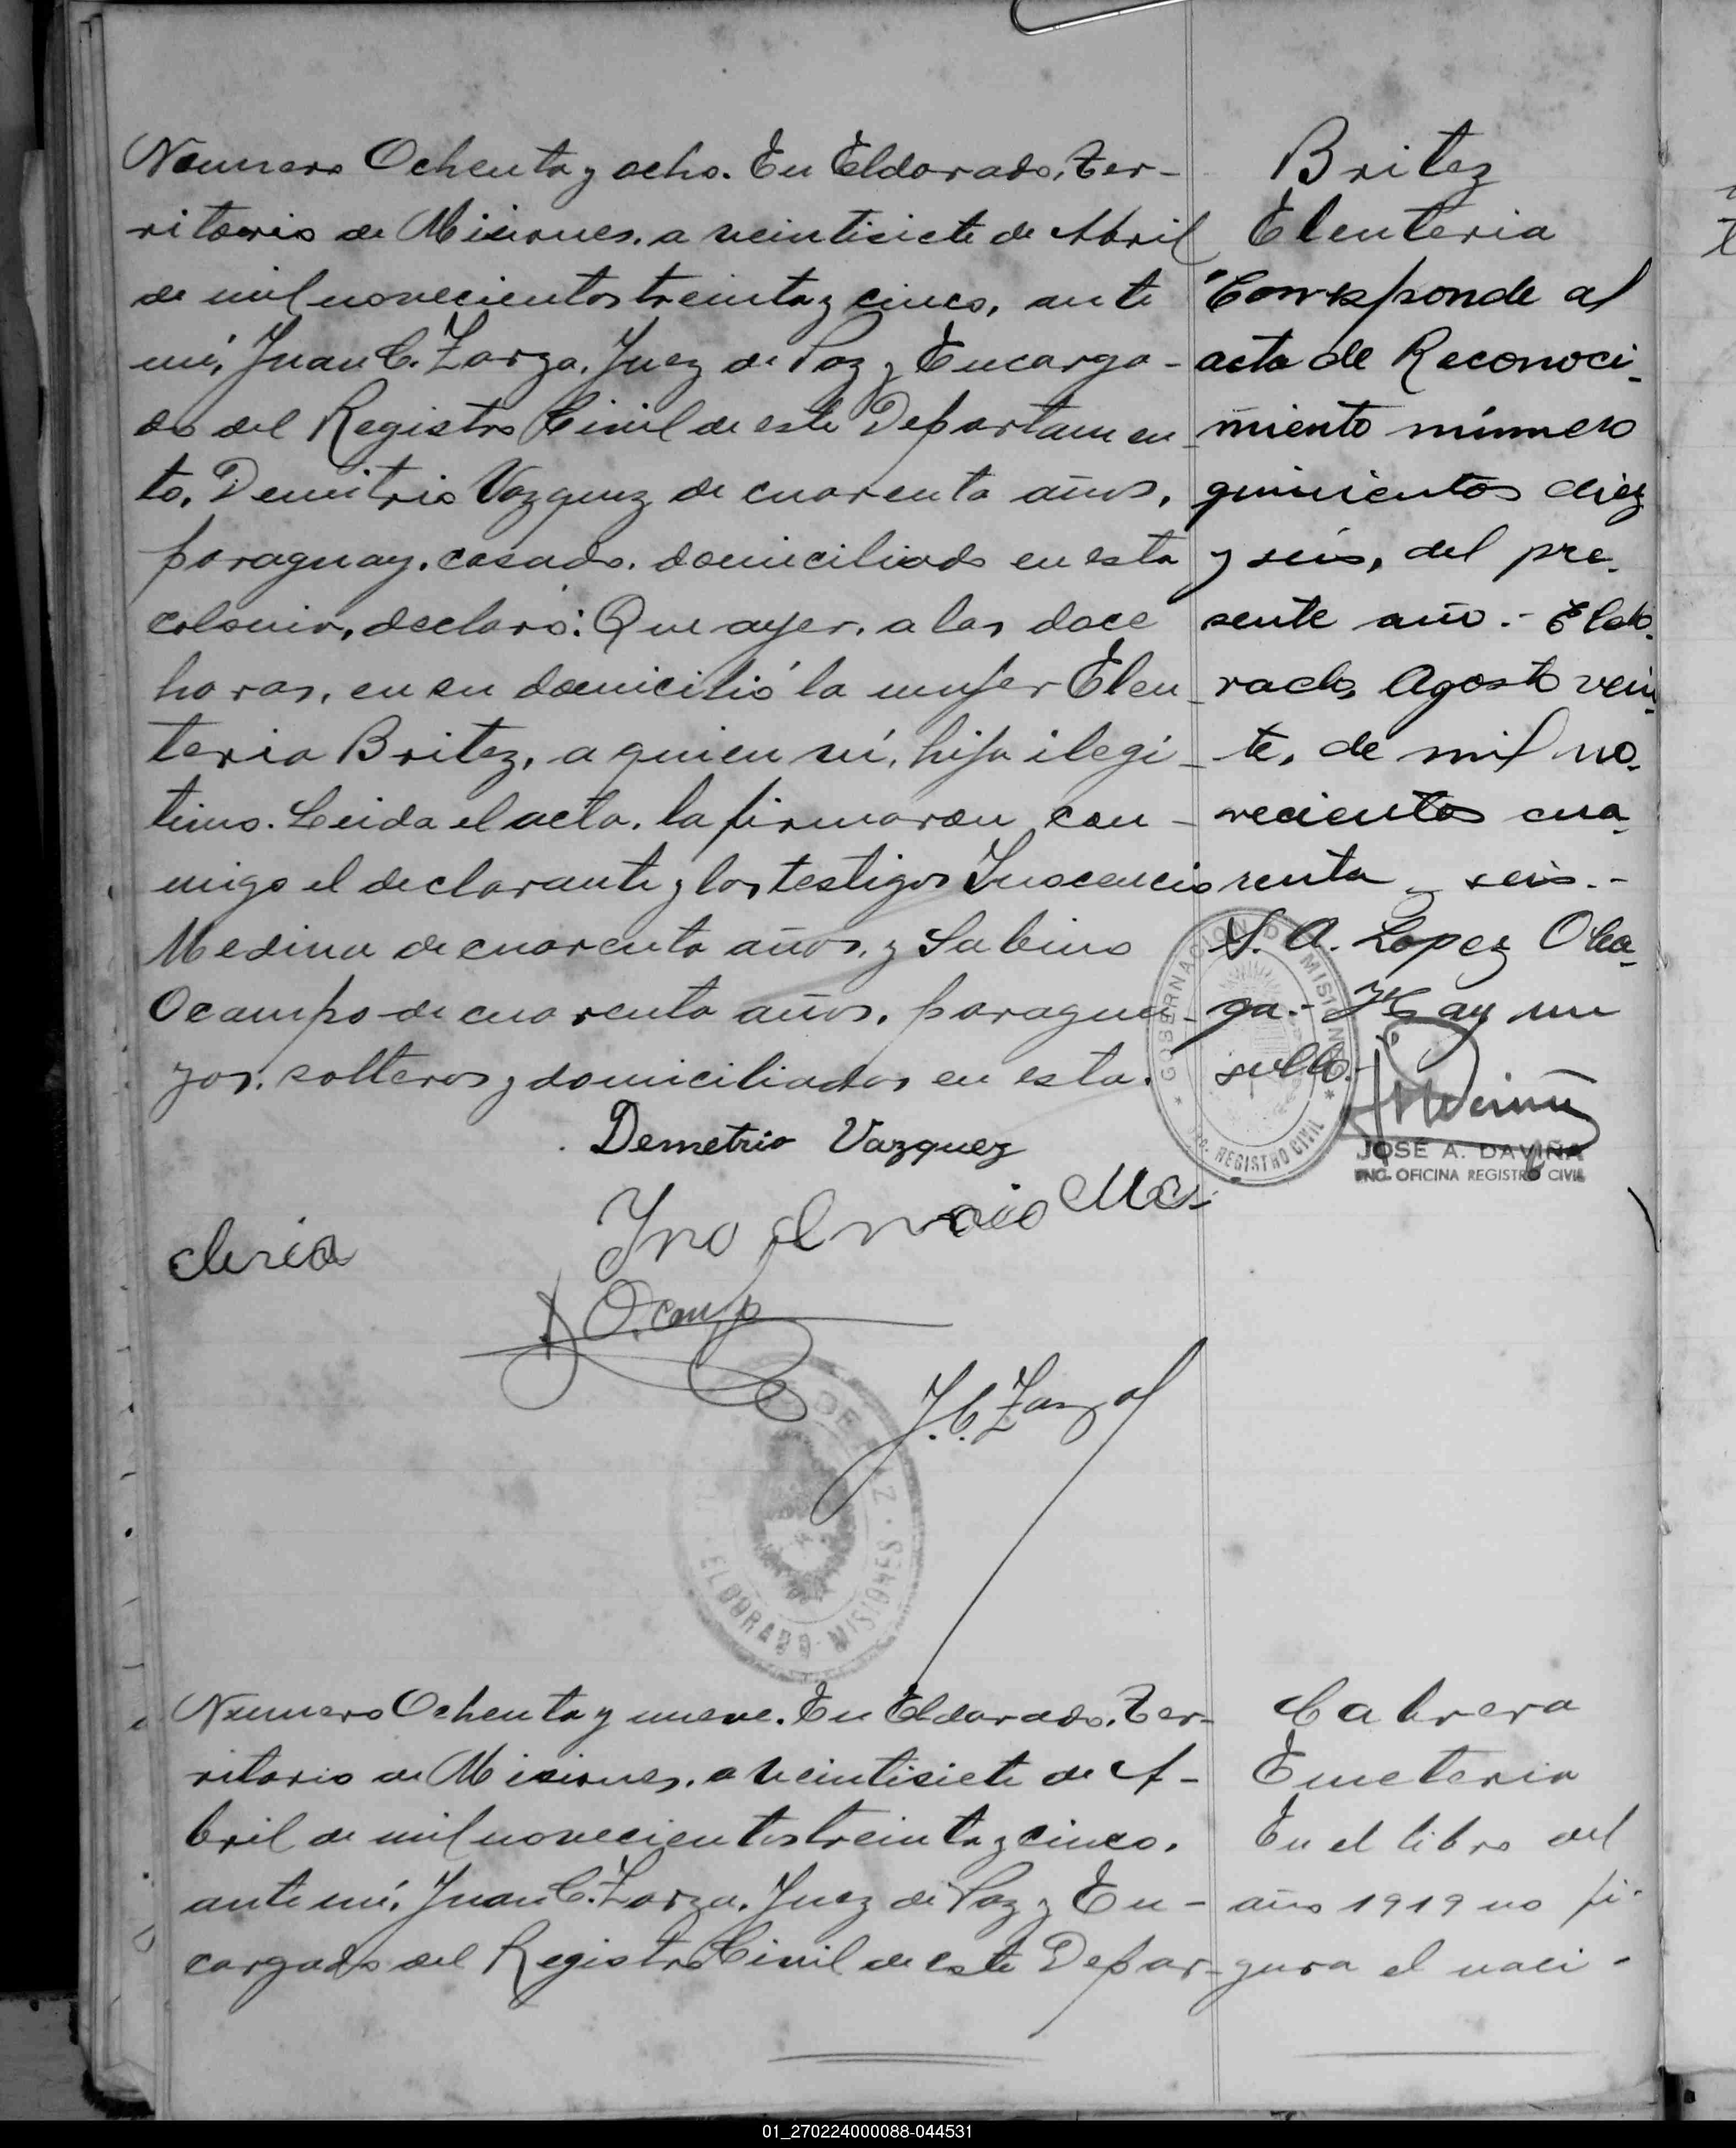 Numero Ochenta y ocho. En Eldorado, Ter-
ritorio de Misiones, a veintisiete de Abril
de mil novecientos treinta y cinco, ante
mí, Juan C. Zarza, Juez de Paz y Encarga-
do del Registro Civil de este Departamen-
to, Demetrio Vazquez de cuarenta años,
paraguay, casado, domiciliado en esta
colonia, declaró: Que ayer, a las doce
horas, en su domicilio la mujer Eleu-
teria Britez, a quien ví, hija ilegi-
tima. Leida el acta, la firmaron con-
migo el declarante y los testigos Inocencio
Medina de cuarenta años, y Sabino
Ocampo de cuarenta años, paragua-
yos, solteros y domiciliados en esta.
Demetrio Vazquez
Me-
Ocampo
J. C. Zarza
ELDORADO - MISIONES
Britez
Eleuteria
"Corresponde al
acta de Reconoci-
miento número
quinientos diez
y seis, del pre-
sente año.- Eldo-
rado, Agosto vein-
te, de mil no-
vecientos cua-
renta y seis.-
S. A. Lopez Olea-
ga.- Hay un
sello.-
GOBERNACION DE MISIONES
REGISTRO CIVIL
JOSÉ A. DAVIÑA
ENC. OFICINA REGISTRO CIVIL
Numero Ochenta y nueve. En Eldorado, Ter-
ritorio de Misiones, a veintisiete de A-
bril de mil novecientos treinta y cinco,
ante mí, Juan C. Zarza, Juez de Paz y En-
cargado del Registro Civil de este Depar-
Cabrera
Emeteria
En el libro del
año 1919 no fi-
gura el naci-
01_270224000088-044531